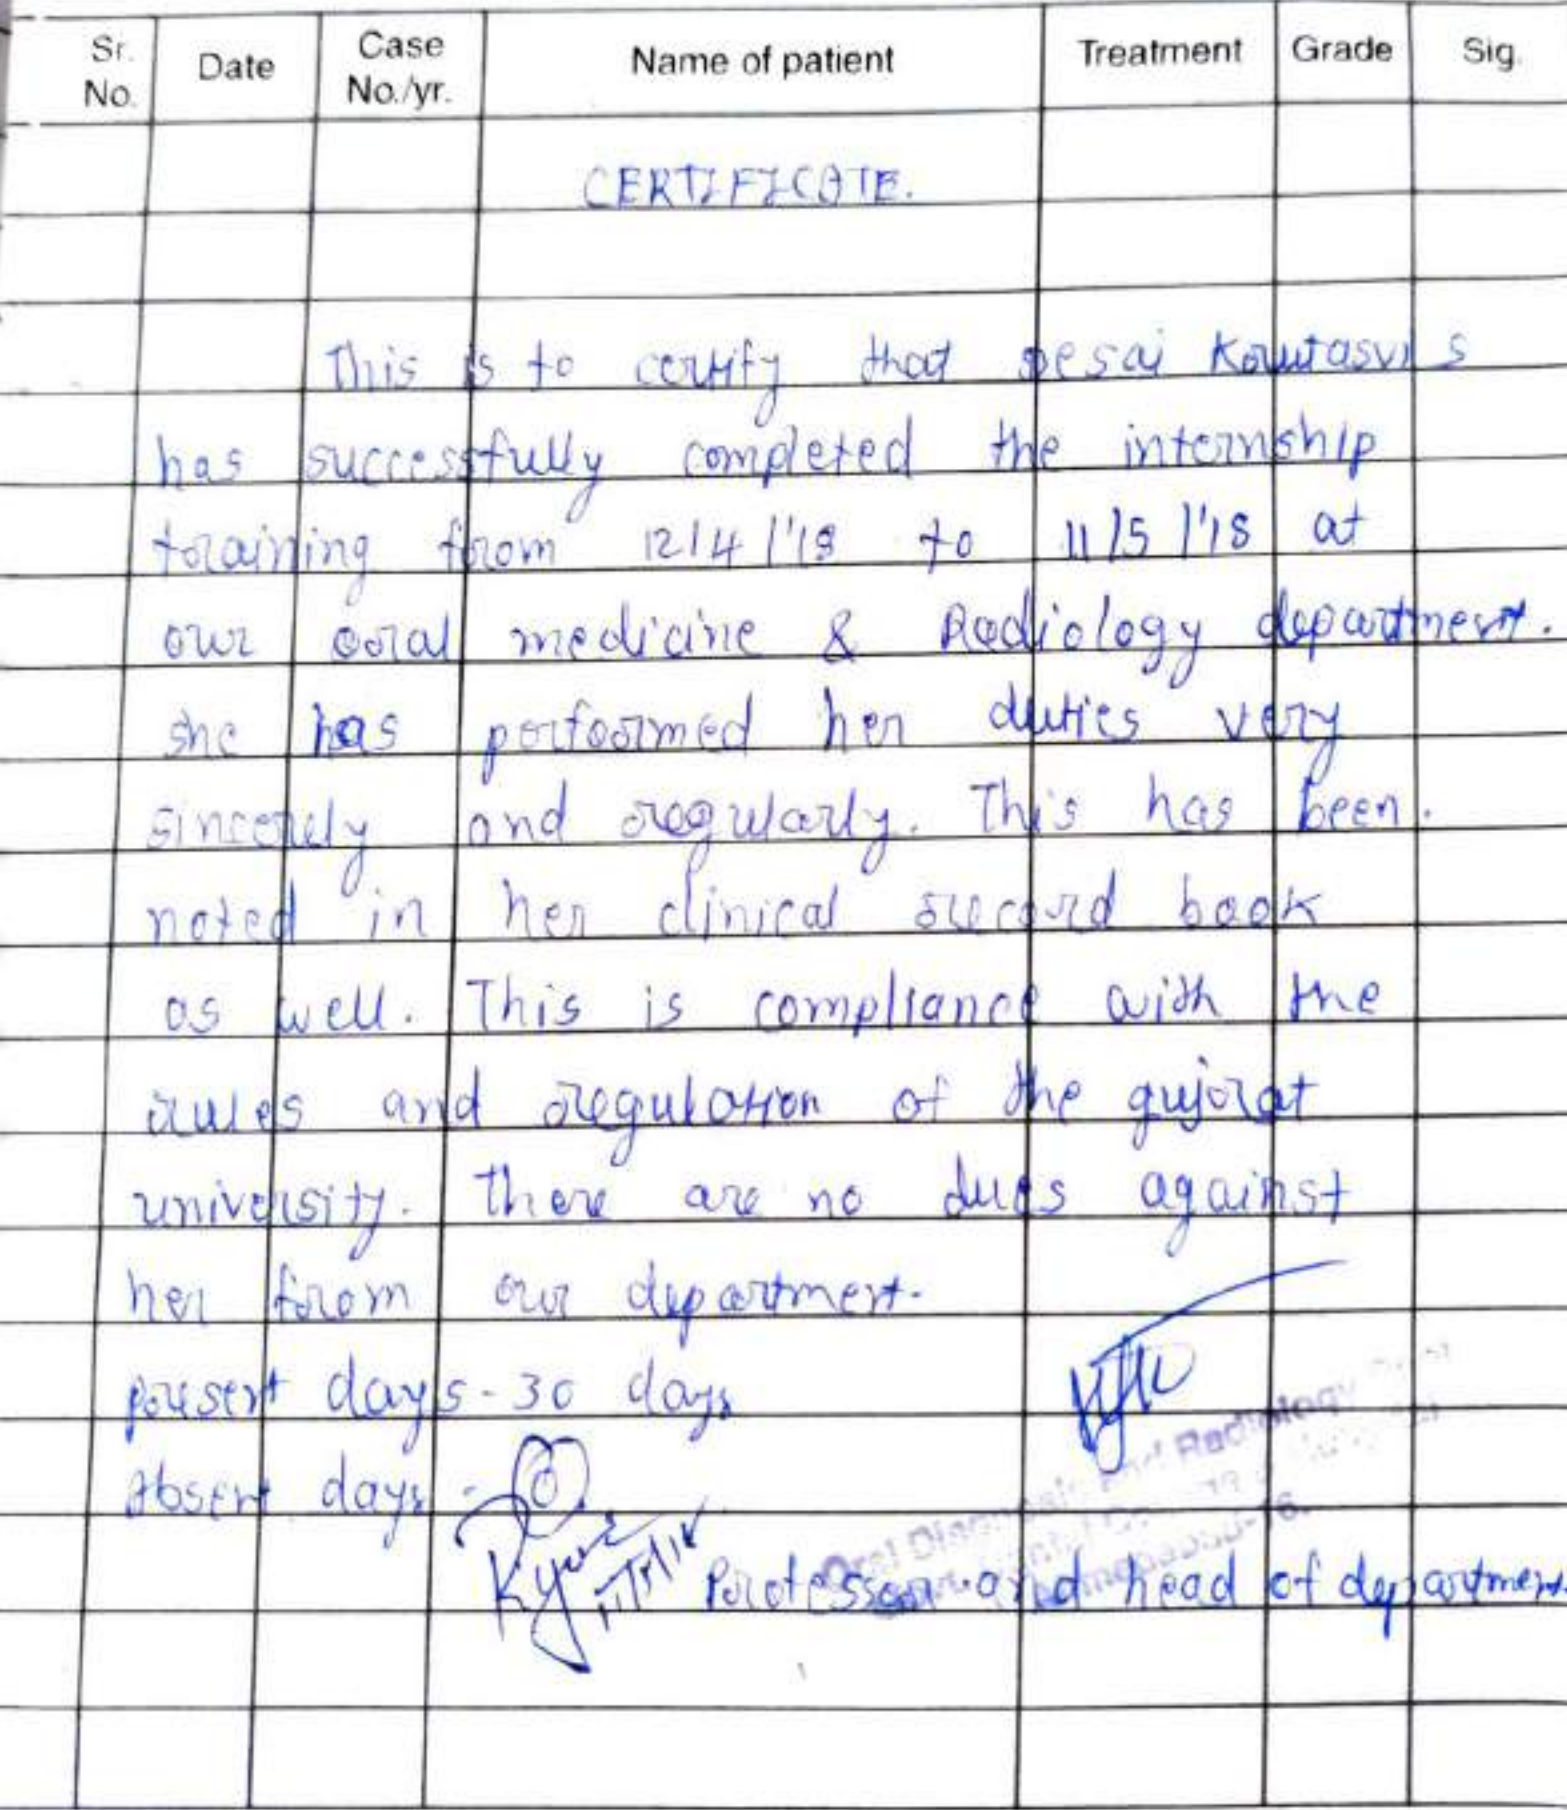 Sr. No. Date Case No./yr. Name of patient Treatment Grade Sig.
CERTIFICATE.
This is to certify that Desai S
has successfully completed the internship
training from 12/4/'18 to 11/5/'18 at
our oral medicine & Radiology department.
she has performed her duties very
sincerely and regularly. This has been.
noted in her clinical record book
as well. This is compliance with the
rules and regulation of the gujarat
university. There are no dues against
her from our department.
present days - 30 days
Absent days - 0
Oral Diagnosis and Radiology
Professor and head of department